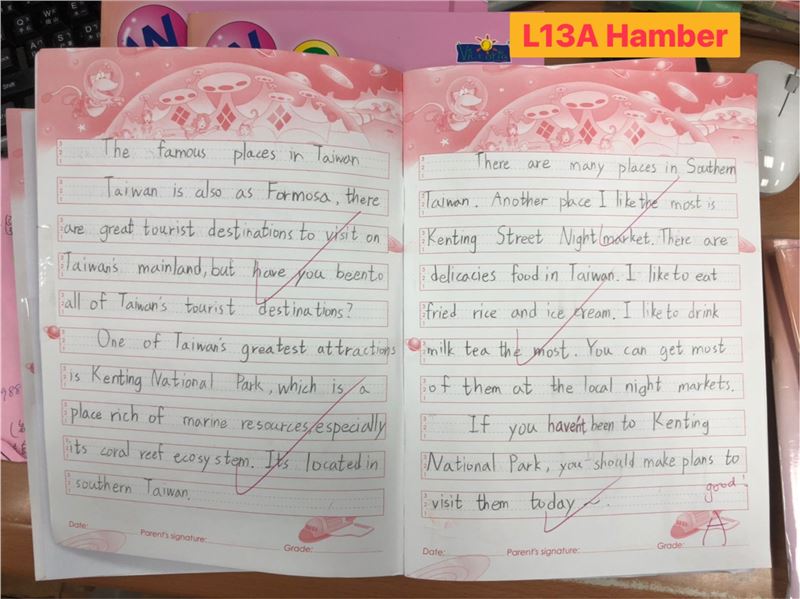 L13A Hamber
The famous places in Taiwan
Taiwan is also as Formosa, there
are great tourist destinations to visit on
Taiwan's mainland, but have you been to
all of Taiwan's tourist destinations?
One of Taiwan's greatest attractions
is Kenting National Park, which is a
place rich of marine resources, especially
its coral reef ecosystem. Its located in
southern Taiwan.
Date:
Parent's signature:
Grade:
There are many places in Southern
Taiwan. Another place I like the most is
Kenting Street Night market. There are
delicacies food in Taiwan. I like to eat
fried rice and ice cream. I like to drink
milk tea the most. You can get most
of them at the local night markets.
If you haven't been to Kenting
National Park, you should make plans to
visit them today~.
good!
A
Date:
Parent's signature:
Grade: